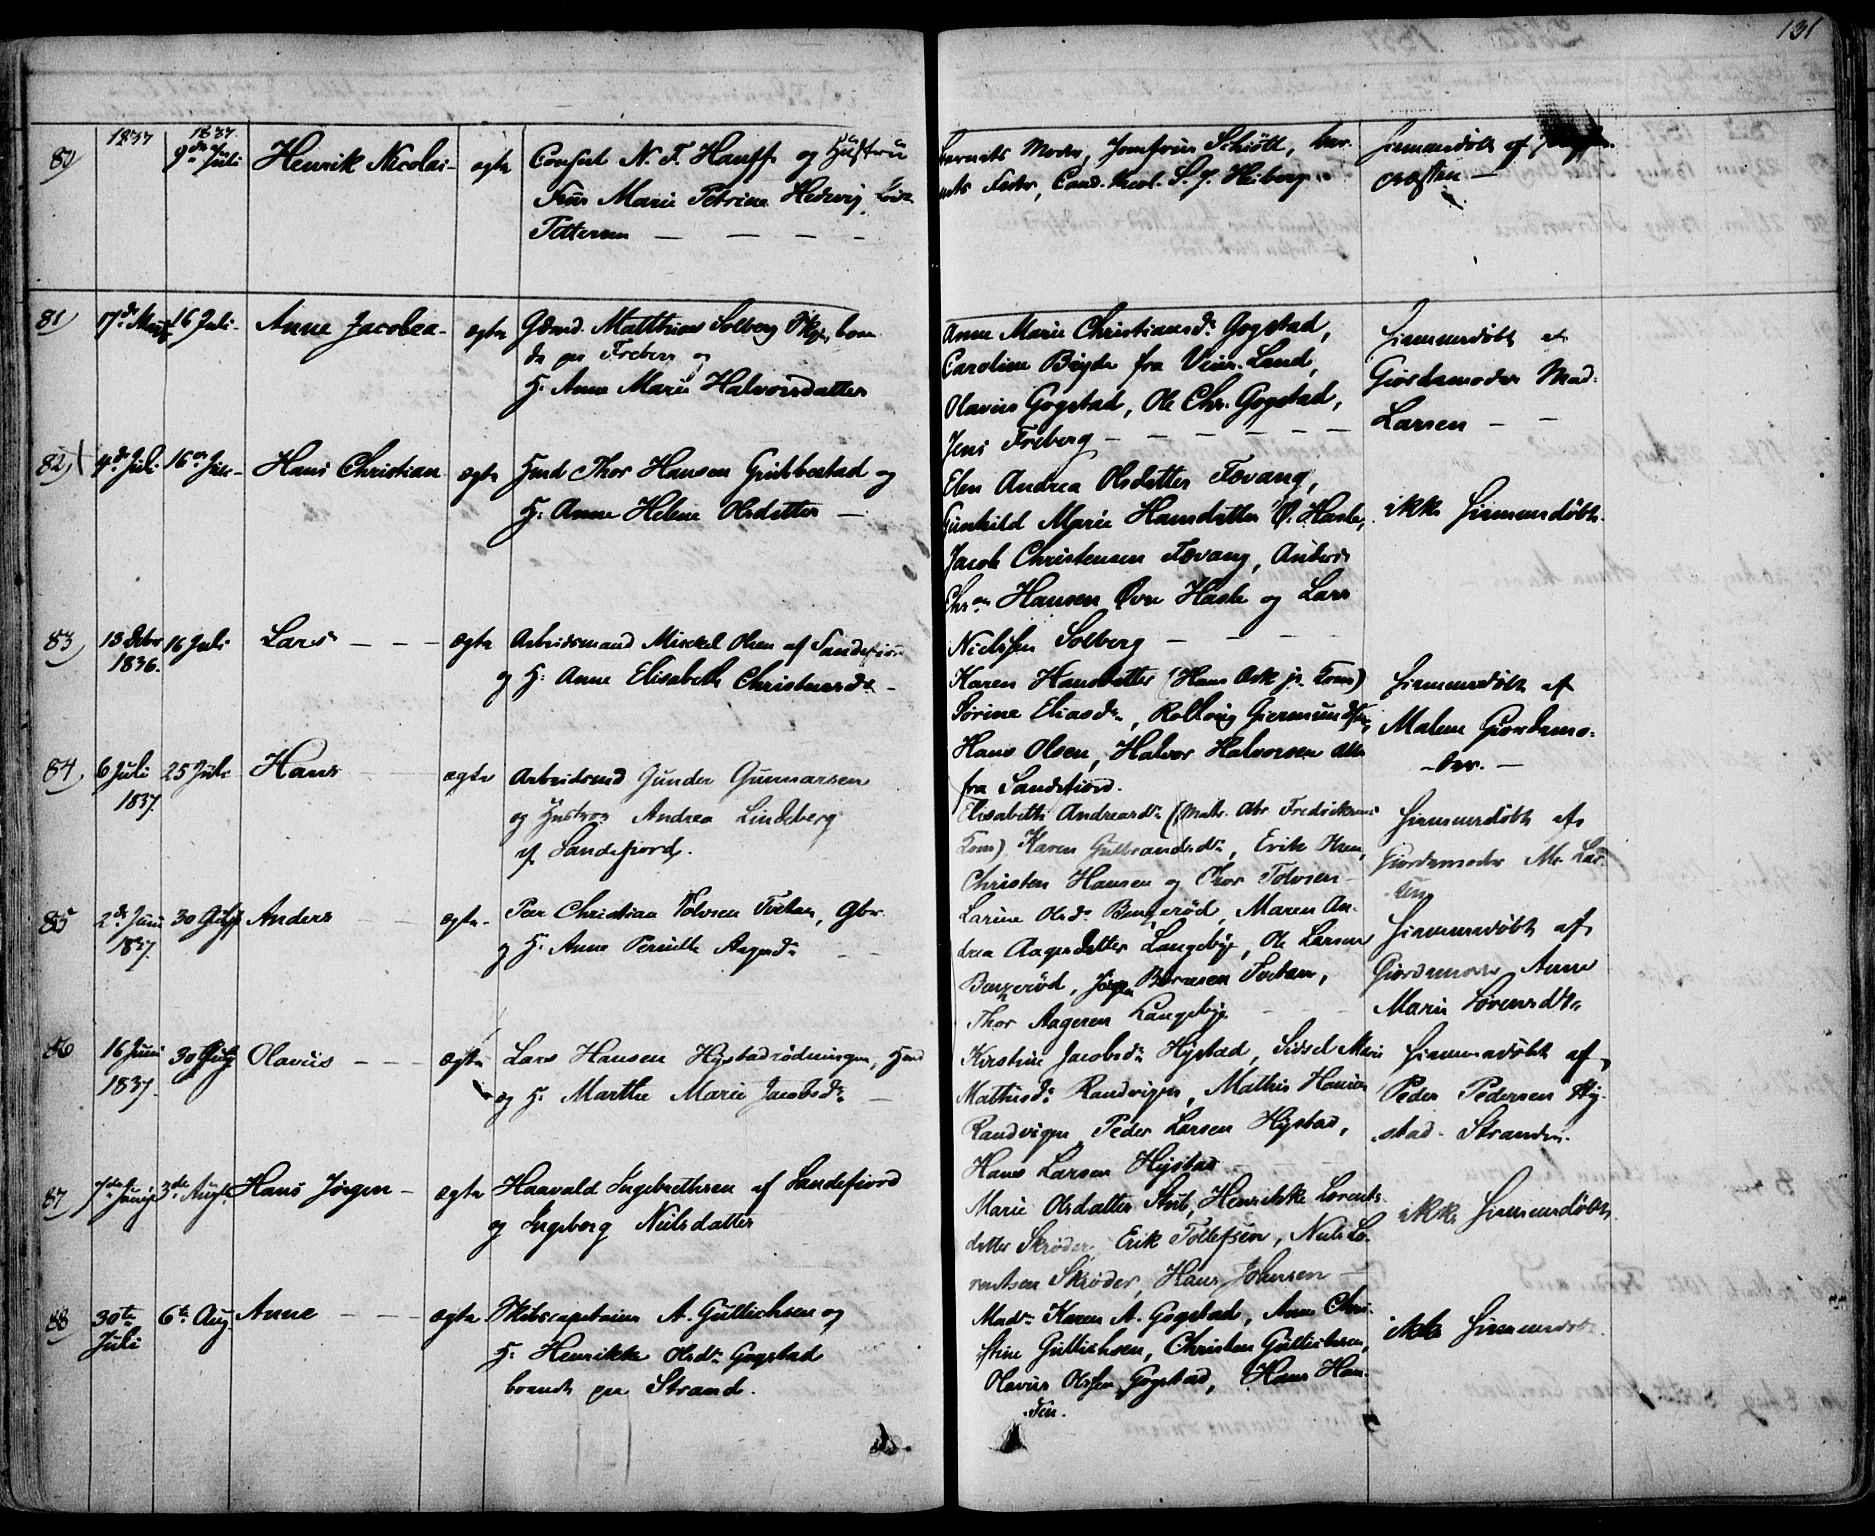 131
1837 1837
80) 9de Juli Henrik Nicolai - ægte Consul N. F. Hauff og Hustru
Frue Marie Petrine Hedevig
Petersen — — — —
Barnets Moder, Jomfrue Schiött, bar-
nets Fader, Cand. theol. S. J. Heiberg
hjemmedøbt af
præsten —
81) 17de 16 Juli - Anne Jacobea - ægte Gdmd. Matthias Solberg boen
de paa Freberg og
H: Anne Marie Halvorsdatter
Anne Marie Christiansdr Gogstad,
Caroline Bryde fra Land,
Olavus Gogstad, Ole Chr. Gogstad,
Jens Freberg — — — — —
hjemmedøbt af
Giordemoder Mad:
Larsen — —
82) 4de Juli 16de Juli - Hans Christian ægte Hmd Thor Hansen Grubbestad og
H: Anne Helene Olsdatter —
Elen Andrea Olsdatter Fævang,
Gunhild Marie Hansdatter Ø. Hasle,
Jacob Christensen Fævang, Anders
Chr. Hansen Øvre Hasle og Lars
Nielssen Solberg — — — —
ikke hjemmedøbt.
83) 13 Debr 16 Juli Lars — — — ægte Arbeidsmand Mickel Olsen af Sandefiord
1836. og H: Anne Elisabeth Christensdr —
Karen Hansdatter (Hans Ask jr. Kone)
Sørine Eliasdr, Rollvig Giermundsen,
Hans Olsen, Halvor Halvorsen alle
fra Sandefiord.
hjemmedøbt af
Malene Giordemo-
-der. —
84) 6 Juli 25 Juli Hans — — ægte Arbeidsmd Gunder Gunnarsen
1837. og Hustroe Andrea Lindeberg
af Sandefiord.
Elisabeth Andreasdr (Matr. Abr Fredriksens
Kone) Karen Gulbrandsdr, Erik
Christen Hansen og Thor Tolvsen —
hjemmedøbt af
Giordemoder M. Lar-
sen
85 2de Juni 30 Juli Anders — — ægte. Peer Christian Tolvsen Tveten, Gbr.
1837. og H: Anne Pernille Aagesdr — —
Larine Olsdr Bengerød, Maren An-
drea Aagesdatter Langebye, Ole Larsen
Bengerød, Jørgen Børresen Tveten,
Thor Aagesen Langebye — — —
hjemmedøbt af
Giordemoder Anne
Marie Sørensdtr.
86 16 Juni 30 Juli Olavus — — — ægte Lars Hansen Hystadrødningen, Hmd
1837. og H: Marthe Marie Jacobsdr —
Kirstine Jacobsdr Hystad, Sidsel Marie
Mathisdr Randvigen, Mathis Hansen
Randvigen, Peder Larsen Hystad,
Hans Larsen Hystad
hjemmedøbt af
Peder Pedersen Hy-
stad- Stranden.
87) 7de Juni 3de Aug. Hans Jørgen — ægte Haavald Ingebrethsen af Sandefiord
og Ingeborg Nielsdatter
Marie Olsdatter Stub, Henrikke Lorents-
datter Skrøder, Erik Tollefsen, Niels Lo-
rentsen Skrøder, Hans Johnsen —
ikke hjemmedøbt.
88 30te 6te Aug. Anne — — — ægte Skibscapitain A. Gullichsen og
Juli H: Henrikke Olsdr Gogstad
boende paa Strand.
Madm Karen A. Gogstad, Anne Chri-
stine Gullichsen, Christen Gullichsen,
Olavus Olssen Gogstad, Hans Han-
sen.
ikke hjemmedøbt.